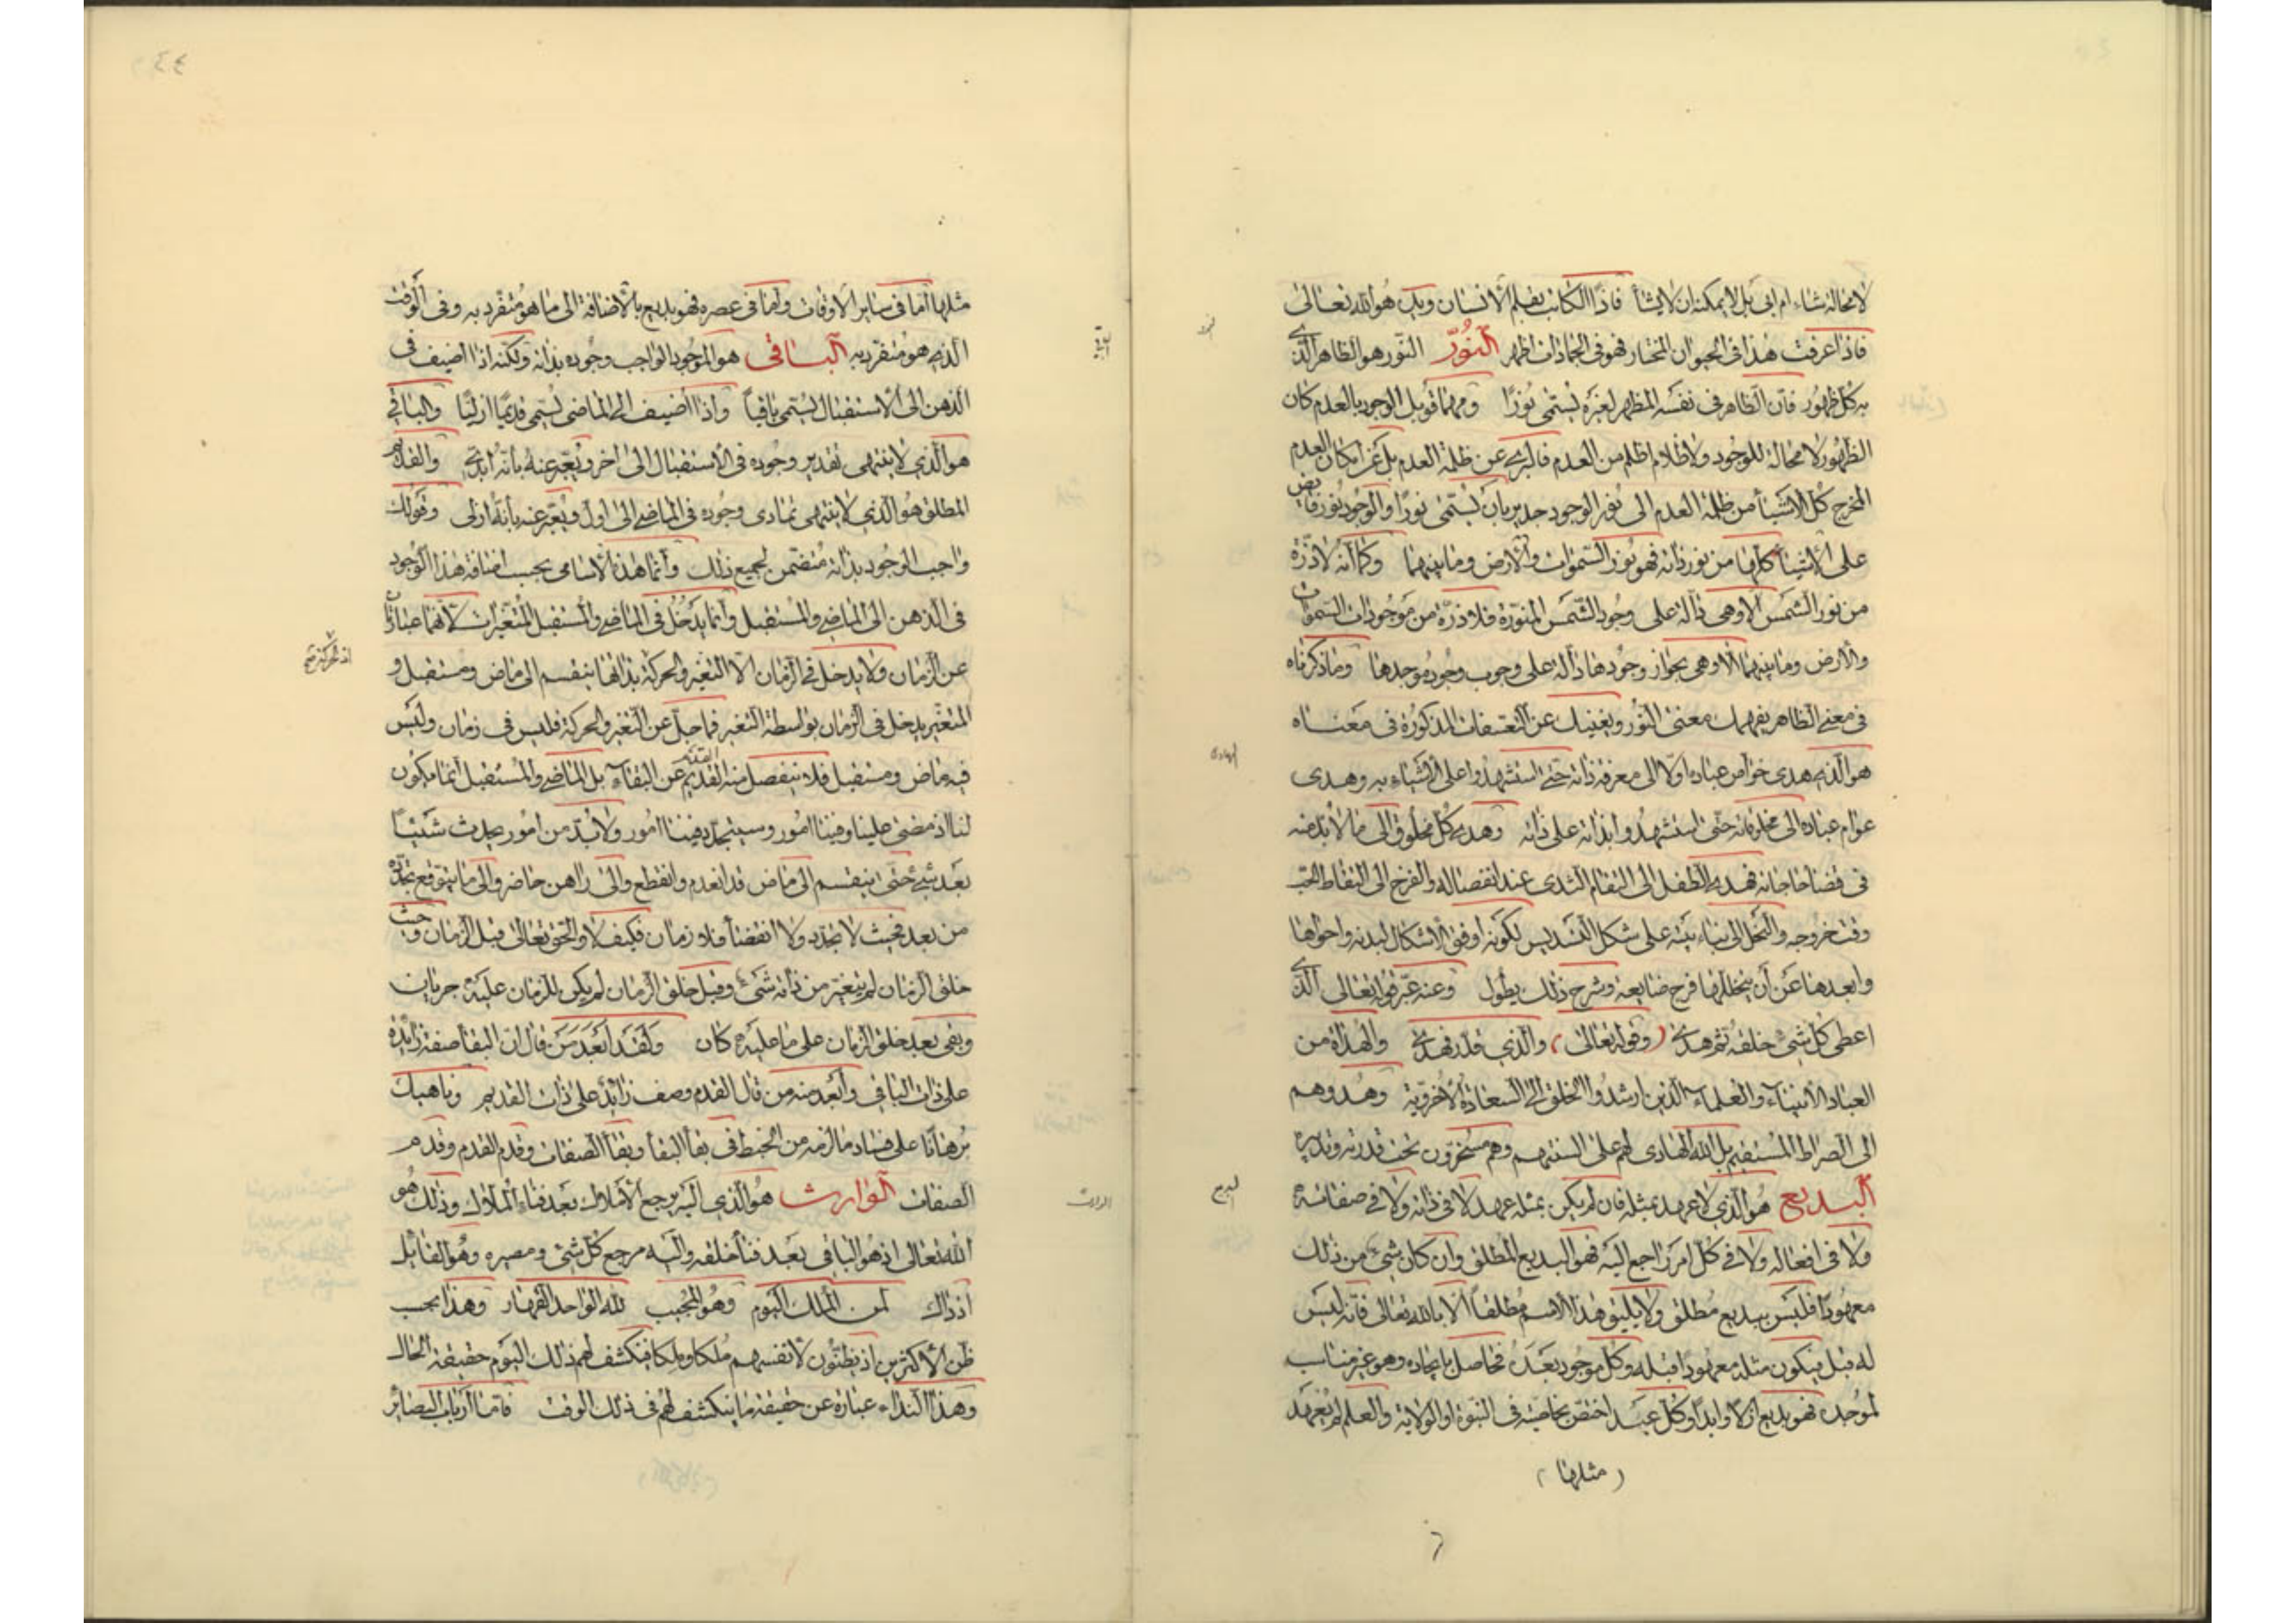 لا محالة شاء ام ابى بل لا يمكنه ان لا يشأ فاذًا الكاتب بقلم الانسان ويده هو الله تعالى
فاذا عرفت هذا فى الحيوان المختار فهو فى الجمادات اظهر النّور النّور هو الظاهر الّذى
به كل ظهور فان الظاهر فى نفسه المظهر لغيره يُسمّى نُورًا ومهما قوبل الوجود بالعدم كان
الظهور لا محالة للوجود ولا ظلام اظلم من العدم فالبرىء عن ظلمة العدم بل عن امكان العدم
المخرج كل الاشيأ من ظلمة العدم الى نور الوجود جدير بان يُسمّى نورًا والوجود نور فايض
على الاشيأ كلّها من نور ذاته فهو نور السّموات والارض وما بينهما وكما انّه لا ذرّة
من نور الشمس الا وهى دالّة على وجود الشّمس المنوّرة فلا ذرّة من موجودات السموات
والارض وما بينهما الا وهى بجواز وجودها دالّة على وجوب وجود موجدها وما ذكرناه
فى معنى الظاهر يفهمك معنى النّور ويغنيك عن التعسّفات المذكورة فى معناه
الهادى
هو الذى هدى خواص عباده اولا الى معرفة ذاته حتى استشهدوا على الاشياء به وهدى
عوام عباده الى مخلوقاته حتّى استشهدوا بها على ذاته وهدى كل مخلوق الى ما لا بد منه
فى قضا حاجاته فهدى الطفل الى التقام الثدى عند انفصاله والفرخ الى التقاط الحبّ
وقت خروجه والنحل الى بناء بيته على شكل التسديس لكونه اوفق الاشكال لبدنه واحواها
وابعدها عن أن يتخللها فرج ضايعة وشرح ذلك يطول وعنه عبّر قوله تعالى الّذى
اعطى كل شىء خلقه ثم هدى (وقوله تعالى) والّذى قدّر فهدى والهداة من
العباد الانبياء والعلماء الّذين ارشدوا الخلق الى السعادة الاخرويّة وهدوهم
الى الصراط المستقيم بل الله الهادى لهم على السنتهم وهم مسخّرون تحت قدرته وتدبيره
البديع هو الّذى لا عهد بمثله فان لم يكن بمثله عهد لا فى ذاته ولا فى صفاته
ولا فى افعاله ولا فى كل امر راجع اليه فهو البديع المطلق وان كان شىء من ذلك
معهودًا فليس ببديع مطلق ولا يليق هذا الاسم مطلقًا الا بالله تعالى فانّه ليس
له قبل فيكون مثله معهودًا قبله وكل موجود بعده فحاصل بايجاده وهو غير مناسب
لموجده فهو بديع ازلًا وابدًا وكل عبد اختصّ بخاصّيّة فى النبوة او الولاية والعلم لم يُعهد
(مثلها)
مثلها امّا فى ساير الاوقات وامّا فى عصره فهو بديع بالاضافة الى ما هو منفرد به وفى الوقت
الذى هو منفرد به الباقى هو الموجود الواجب وجوده بذاته ولكنه اذا اضيف فى
الذهن الى الاستقبال يُسمّى باقيًا واذا اضيف الى الماضى يُسمّى قديمًا ازليًا والباقى
هو الّذى لا ينتهى تقدير وجوده فى الاستقبال الى اخر ويُعبّر عنه بانّه ابدىّ والقديم
المطلق هو الّذى لا ينتهى تمادى وجوده فى الماضى الى اول ويُعبّر عنه بأنّه ازلى وقولك
واجب الوجود بذاته متضمن لجميع ذلك وانّما هذه الاسامى بحسب اضافة هذا الوجود
فى الذهن الى الماضى والمستقبل وانما يدخل فى الماضى والمستقبل المتغيّرات لانّهما عبارتان
عن الزمان ولا يدخل فى الزمان الا التغيّر والحركة بذاتها ينقسم الى ماض ومستقبل و
اذ الحركة
المتغير يدخل فى الزمان بواسطة التغير فما جلّ عن التغير والحركة فليس فى زمان وليس
فيه ماض ومستقبل فلا ينفصل منه القديم عن البقاء بل الماضى والمستقبل انما يكون
لنا اذ مضى علينا وفينا امور وسيتجدّد فينا امور ولا بدّ من امور يحدث شيئًا
بعد شىء حتى ينقسم الى ماض قد انعدم وانقطع والى راهن حاضر والى ما يتوقع تجدّده
من بعد فحيث لا تجدّد ولا انقضأ فلا زمان فكيف لا والحق تعالى قبل الزمان وحيث
خلق الزمان لم يتغيّر من ذاته شىء وقبل خلق الزمان لم يكن للزمان عليه جريان
وبقى بعد خلق الزمان على ما عليه كان ولقد ابعد من قال ان البقا صفة زايدة
على ذات الباقى وابعد منه من قال القدم وصف زائد على ذات القديم وناهيك
برهانًا على فساده ما لزمه من الخبط فى بقأ البقأ وبقأ الصفات وقدم القدم وقدم
الصفات الوارث هو الّذى اليه يرجع الاملاك بعد فناء الملاك وذلك هو
الله تعالى اذ هو الباقى بعد فنأ خلقه واليه مرجع كل شىء ومصيره وهو القايل
اذ ذاك لمن الملك اليوم وهو المجيب لله الواحد القهار وهذا بحسب
ظن الاكثرين اذ يظنّون لانفسهم مُلكا ومِلكا فينكشف لهم ذلك اليوم حقيقة الحال
وهذا النداء عبارة عن حقيقة ما ينكشف لهم فى ذلك الوقت فامّا ارباب البصائر